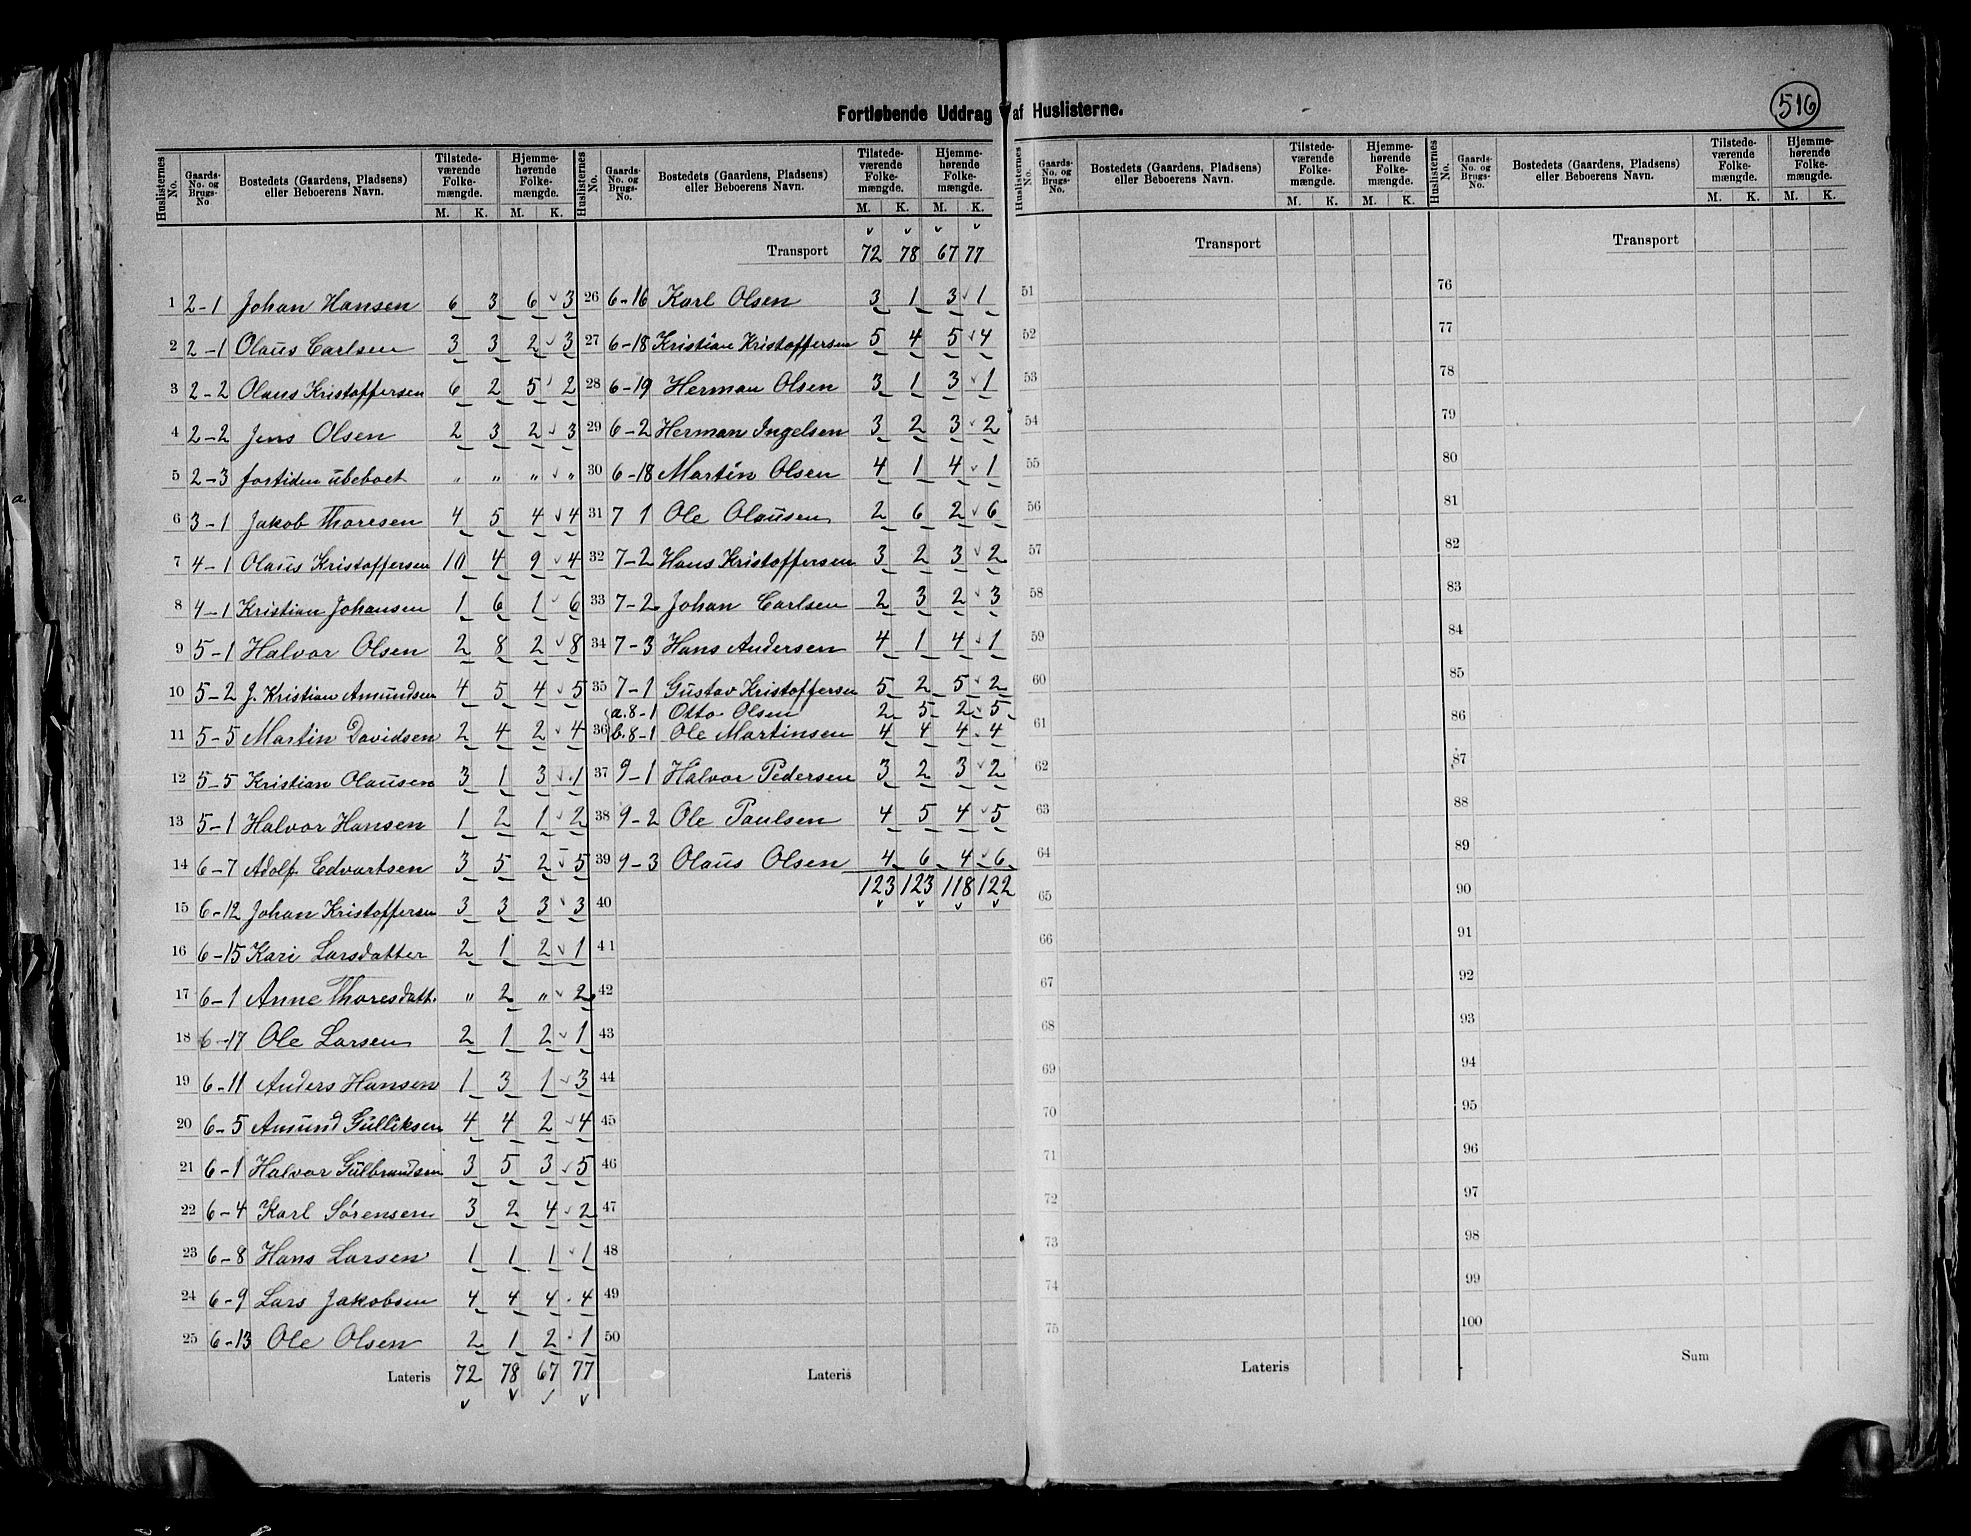 Fortløbende Uddrag af Huslisterne.
516
Huslisternes No. Gaards-No. og Brugs-No Bostedets (Gaardens, Pladsens) eller Beboerens Navn. Tilstedeværende Folkemængde. M. K. Hjemmehørende Folkemængde. M. K.
1 2-1 Johan Hansen 6 3 6 3
2 2-1 Olaus Carlsen 3 3 2 3
3 2-2 Olaus Kristoffersen 6 2 5 2
4 2-2 Jens Olsen 2 3 2 3
5 2-3 fortiden ubeboet " " " "
6 3-1 Jakob Thoresen 4 5 4 4
7 4-1 Olaus Kristoffersen 10 4 9 4
8 4-1 Kristian Johansen 1 6 1 6
9 5-1 Halvor Olsen 2 8 2 8
10 5-2 J. Kristian Amundsen 4 5 4 5
11 5-5 Martin Davidsen 2 4 2 4
12 5-5 Kristian Olausen 3 1 3 1
13 5-1 Halvor Hansen 1 2 1 2
14 6-7 Adolf Edvartsen 3 5 2 5
15 6-12 Johan Kristoffersen 3 3 3 3
16 6-15 Kari Larsdatter 2 1 2 1
17 6-1 Anne Thoresdatt. " 2 " 2
18 6-17 Ole Larsen 2 1 2 1
19 6-11 Anders Hansen 1 3 1 3
20 6-5 Amund Gulliksen 4 4 2 4
21 6-1 Halvor Gulbrandsen 3 5 3 5
22 6-4 Karl Sørensen 3 2 4 2
23 6-8 Hans Larsen 1 1 1 1
24 6-9 Lars Jakobsen 4 4 4 4
25 6-13 Ole Olsen 2 1 2 1
Lateris 72 78 67 77
Huslisternes No. Gaards-No. og Brugs-No. Bostedets (Gaardens, Pladsens) eller Beboerens Navn. Tilstedeværende Folkemængde. M. K. Hjemmehørende Folkemængde. M. K.
Transport 72 78 67 77
26 6-16 Karl Olsen 3 1 3 1
27 6-18 Kristian Kristoffersen 5 4 5 4
28 6-19 Herman Olsen 3 1 3 1
29 6-2 Herman Ingelsen 3 2 3 2
30 6-18 Martin Olsen 4 1 4 1
31 7 1 Ole Olausen 2 6 2 6
32 7-2 Hans Kristoffersen 3 2 3 2
33 7-2 Johan Carlsen 2 3 2 3
34 7-3 Hans Andersen 4 1 4 1
35 7-1 Gustav Kristoffersen 5 2 5 2
a. 8-1 Otto Olsen 2 5 2 5
36 b. 8-1 Ole Martinsen 4 4 4 4
37 9-1 Halvor Pedersen 3 2 3 2
38 9-2 Ole Paulsen 4 5 4 5
39 9-3 Olaus Olsen 4 6 4 6
40 123 123 118 122
41
42
43
44
45
46
47
48
49
50
Lateris
Huslisternes No. Gaards-No. og Brugs-No. Bostedets (Gaardens, Pladsens) eller Beboerens Navn. Tilstedeværende Folkemængde. M. K. Hjemmehørende Folkemængde. M. K.
Transport
51
52
53
54
55
56
57
58
59
60
61
62
63
64
65
66
67
68
69
70
71
72
73
74
75
Lateris
Huslisternes No. Gaards-No. og Brugs-No. Bostedets (Gaardens, Pladsens) eller Beboerens Navn. Tilstedeværende Folkemængde. M. K. Hjemmehørende Folkemængde. M. K.
Transport
76
77
78
79
80
81
82
83
84
85
86
87
88
89
90
91
92
93
94
95
96
97
98
99
100
Sum